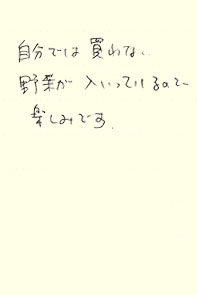 自分では買わない
野菜が入いっているので
楽しみです。